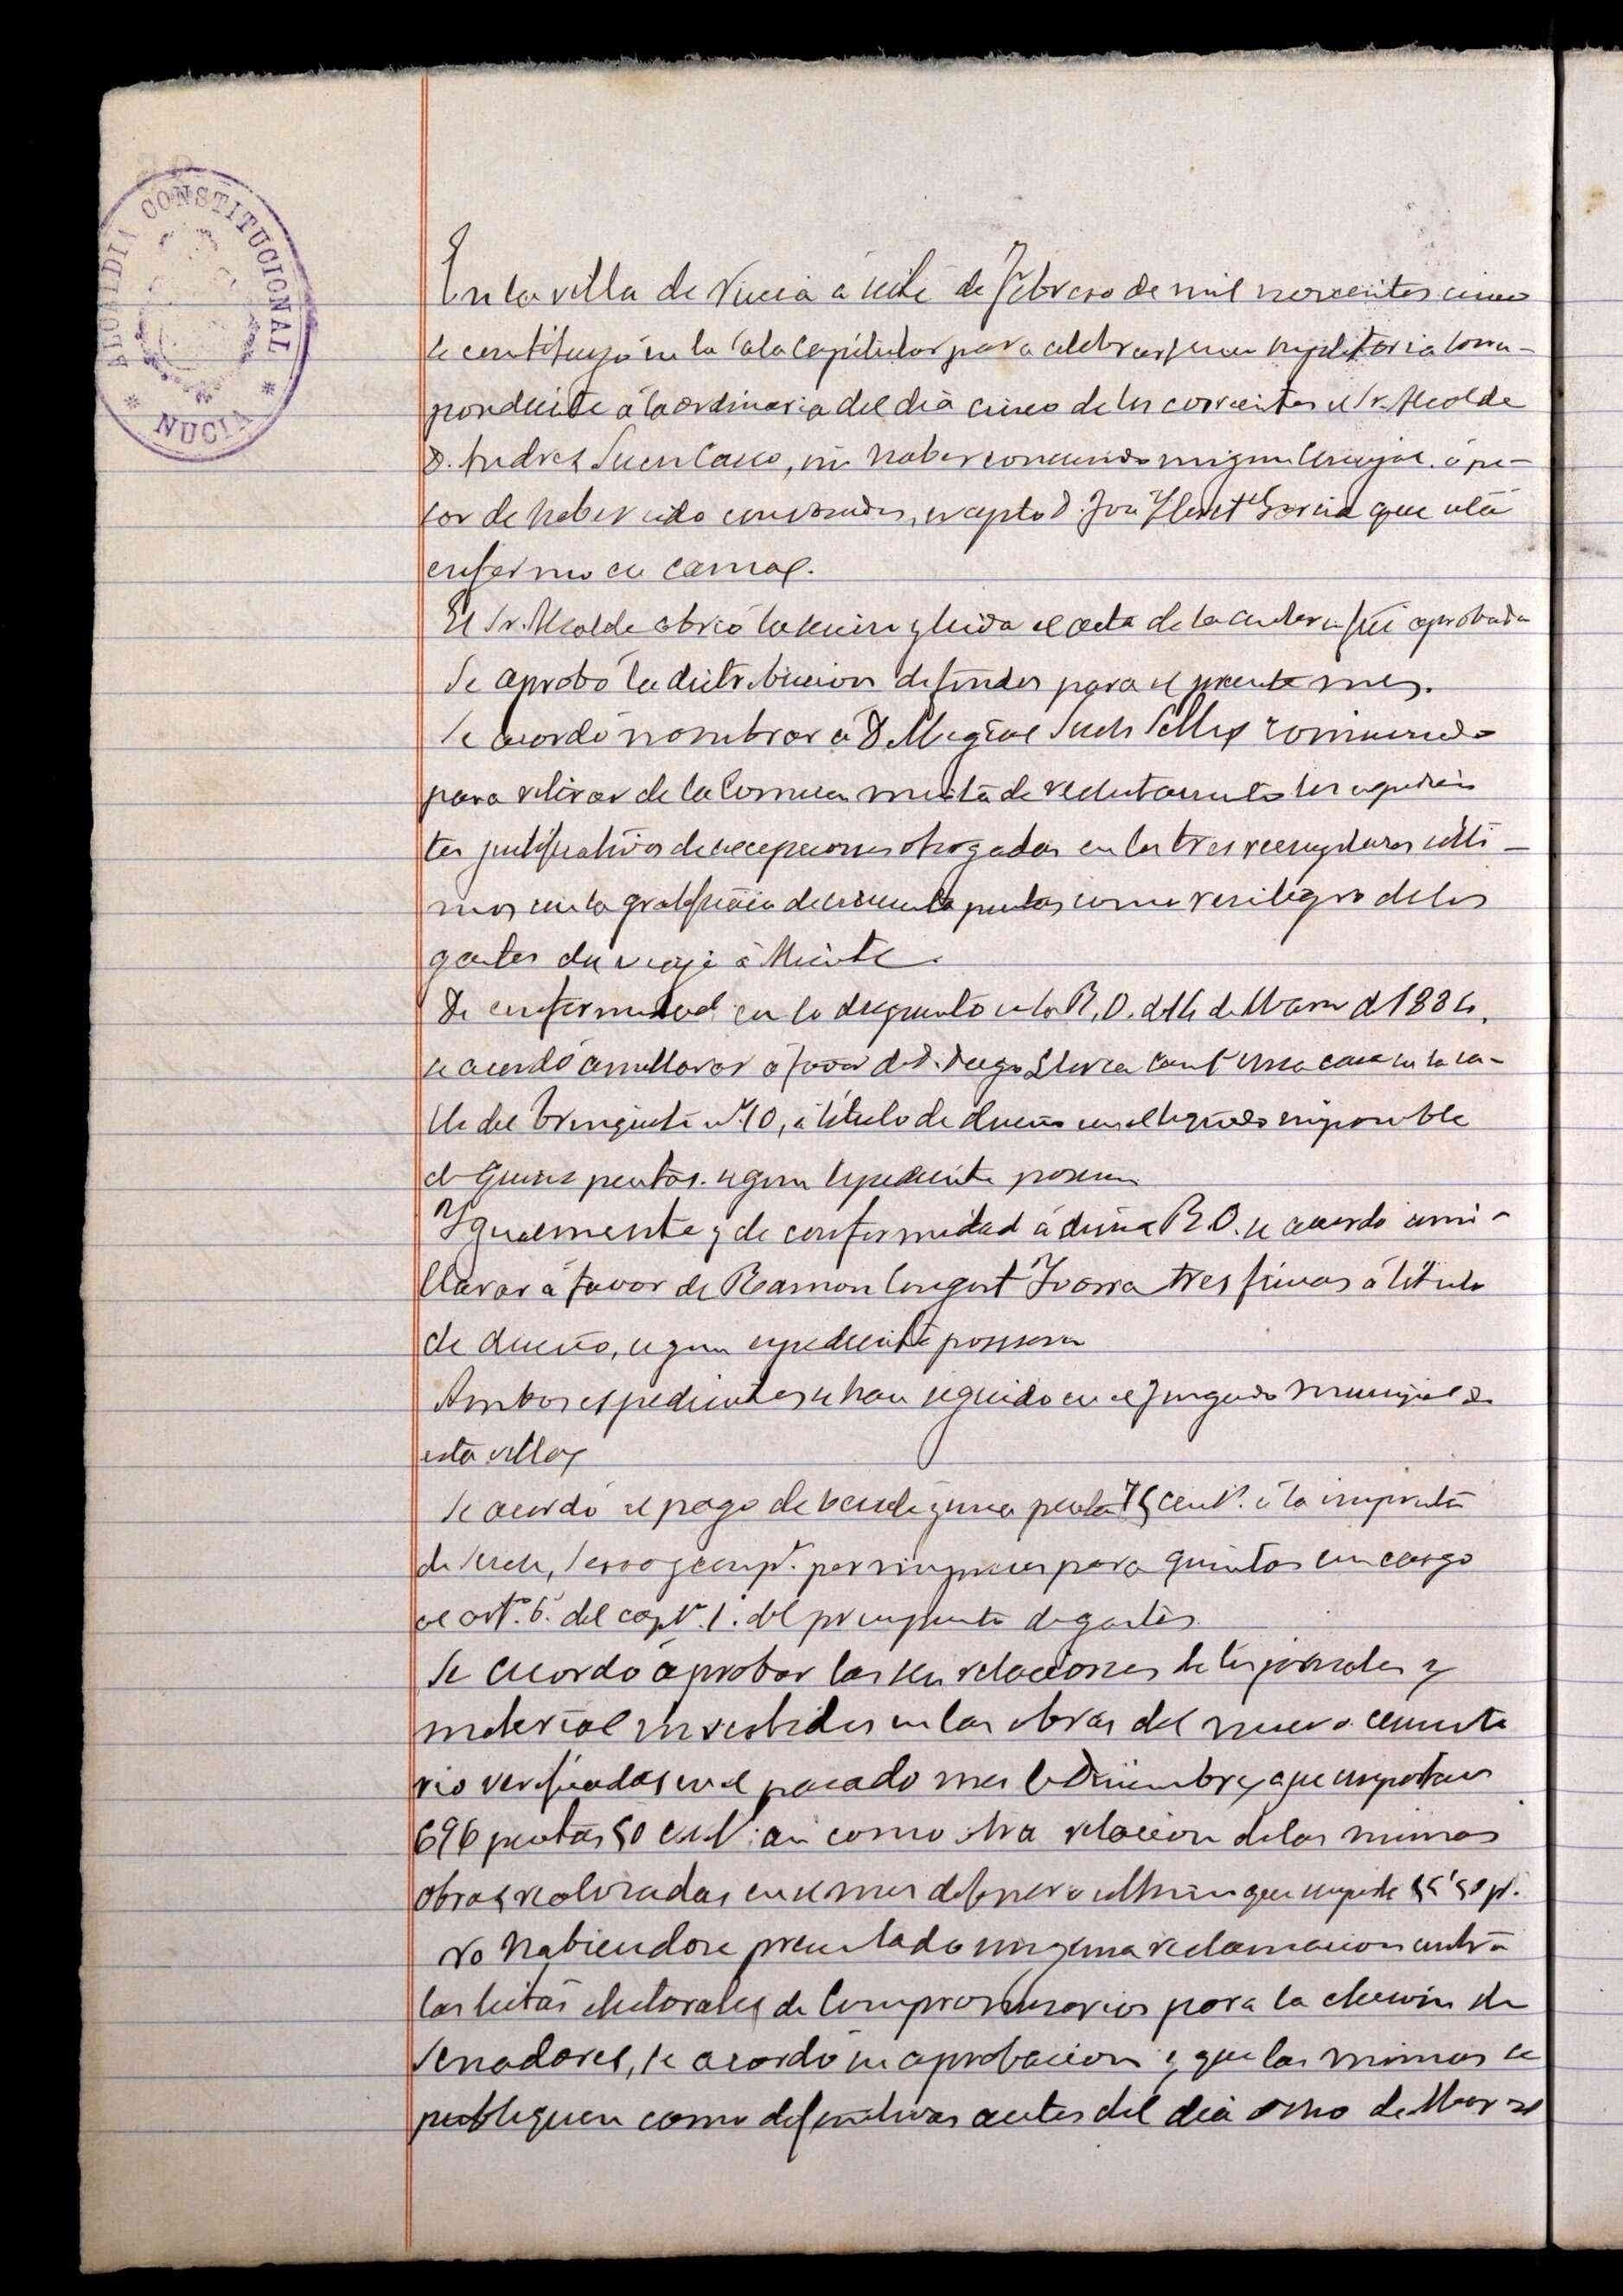 ALCALDIA CONSTITUCIONAL
* NUCIA *
En la villa de Nucia á siete de Febrero de mil novecientos cinco
se constituyó en la Sala Capitular para celebrar sesion supletoria corres-
pondiente á la ordinaria del dia cinco de los corrientes el Sr. Alcalde
D. Andres Such Cano, sin haber concurrido ningun Concejal á pe-
sar de haber sido convocados, excepto D. José Lloret Garcia que está
enfermo en cama.
El Sr. Alcalde abrió la sesion y leida el acta de la anterior fué aprobada
Se aprobó la distribucion de fondos para el presente mes.
Se acordó nombrar á D. Miguel Such Selles comisionado
para retirar de la Comision mixta de reclutamiento los expedien
tes justificativos de excepciones otorgadas en los tres reemplazos ulti-
mos con la gratificacion de cincuenta pesetas como reintegro de los
gastos de viaje á Alicante.
De conformidad con lo dispuesto en la R. O. de 14 de Marzo de 1884,
se acordó amillarar á favor de D. Diego Llorca una casa en la ca-
lle del nº 10, á titulo de dueño con el liquido imponible
de quince pesetas segun expediente
Igualmente y de conformidad á dicha R.O. se acordó ami-
llarar á favor de Ramon Congost Ivorra tres fincas á titulo
de dueño, segun expediente
Ambos expedientes se han seguido en el Juzgado municipal de
esta villa
Se acordó el pago de peseta 75 cent. á la imprenta
de Such, Serra y compª. por impresos para quintas con cargo
al artº. 6º. del capº. 1º. del presupuesto de gastos.
Se acordó aprobar las seis relaciones de los jornales y
material invertidos en las obras del nuevo cemente
rio verificadas en el pasado mes de Diciembre y que importan
696 pesetas 50 cent. asi como otra relacion de las mismas
obras realizadas en el mes de Enero ultimo que importa 55'50 pt.
No habiendose presentado ninguna reclamacion contra
las listas electorales de Compromisarios para la eleccion de
Senadores, se acordó su aprobacion y que las mismas se
publiquen como definitivas antes del dia ocho de Marzo